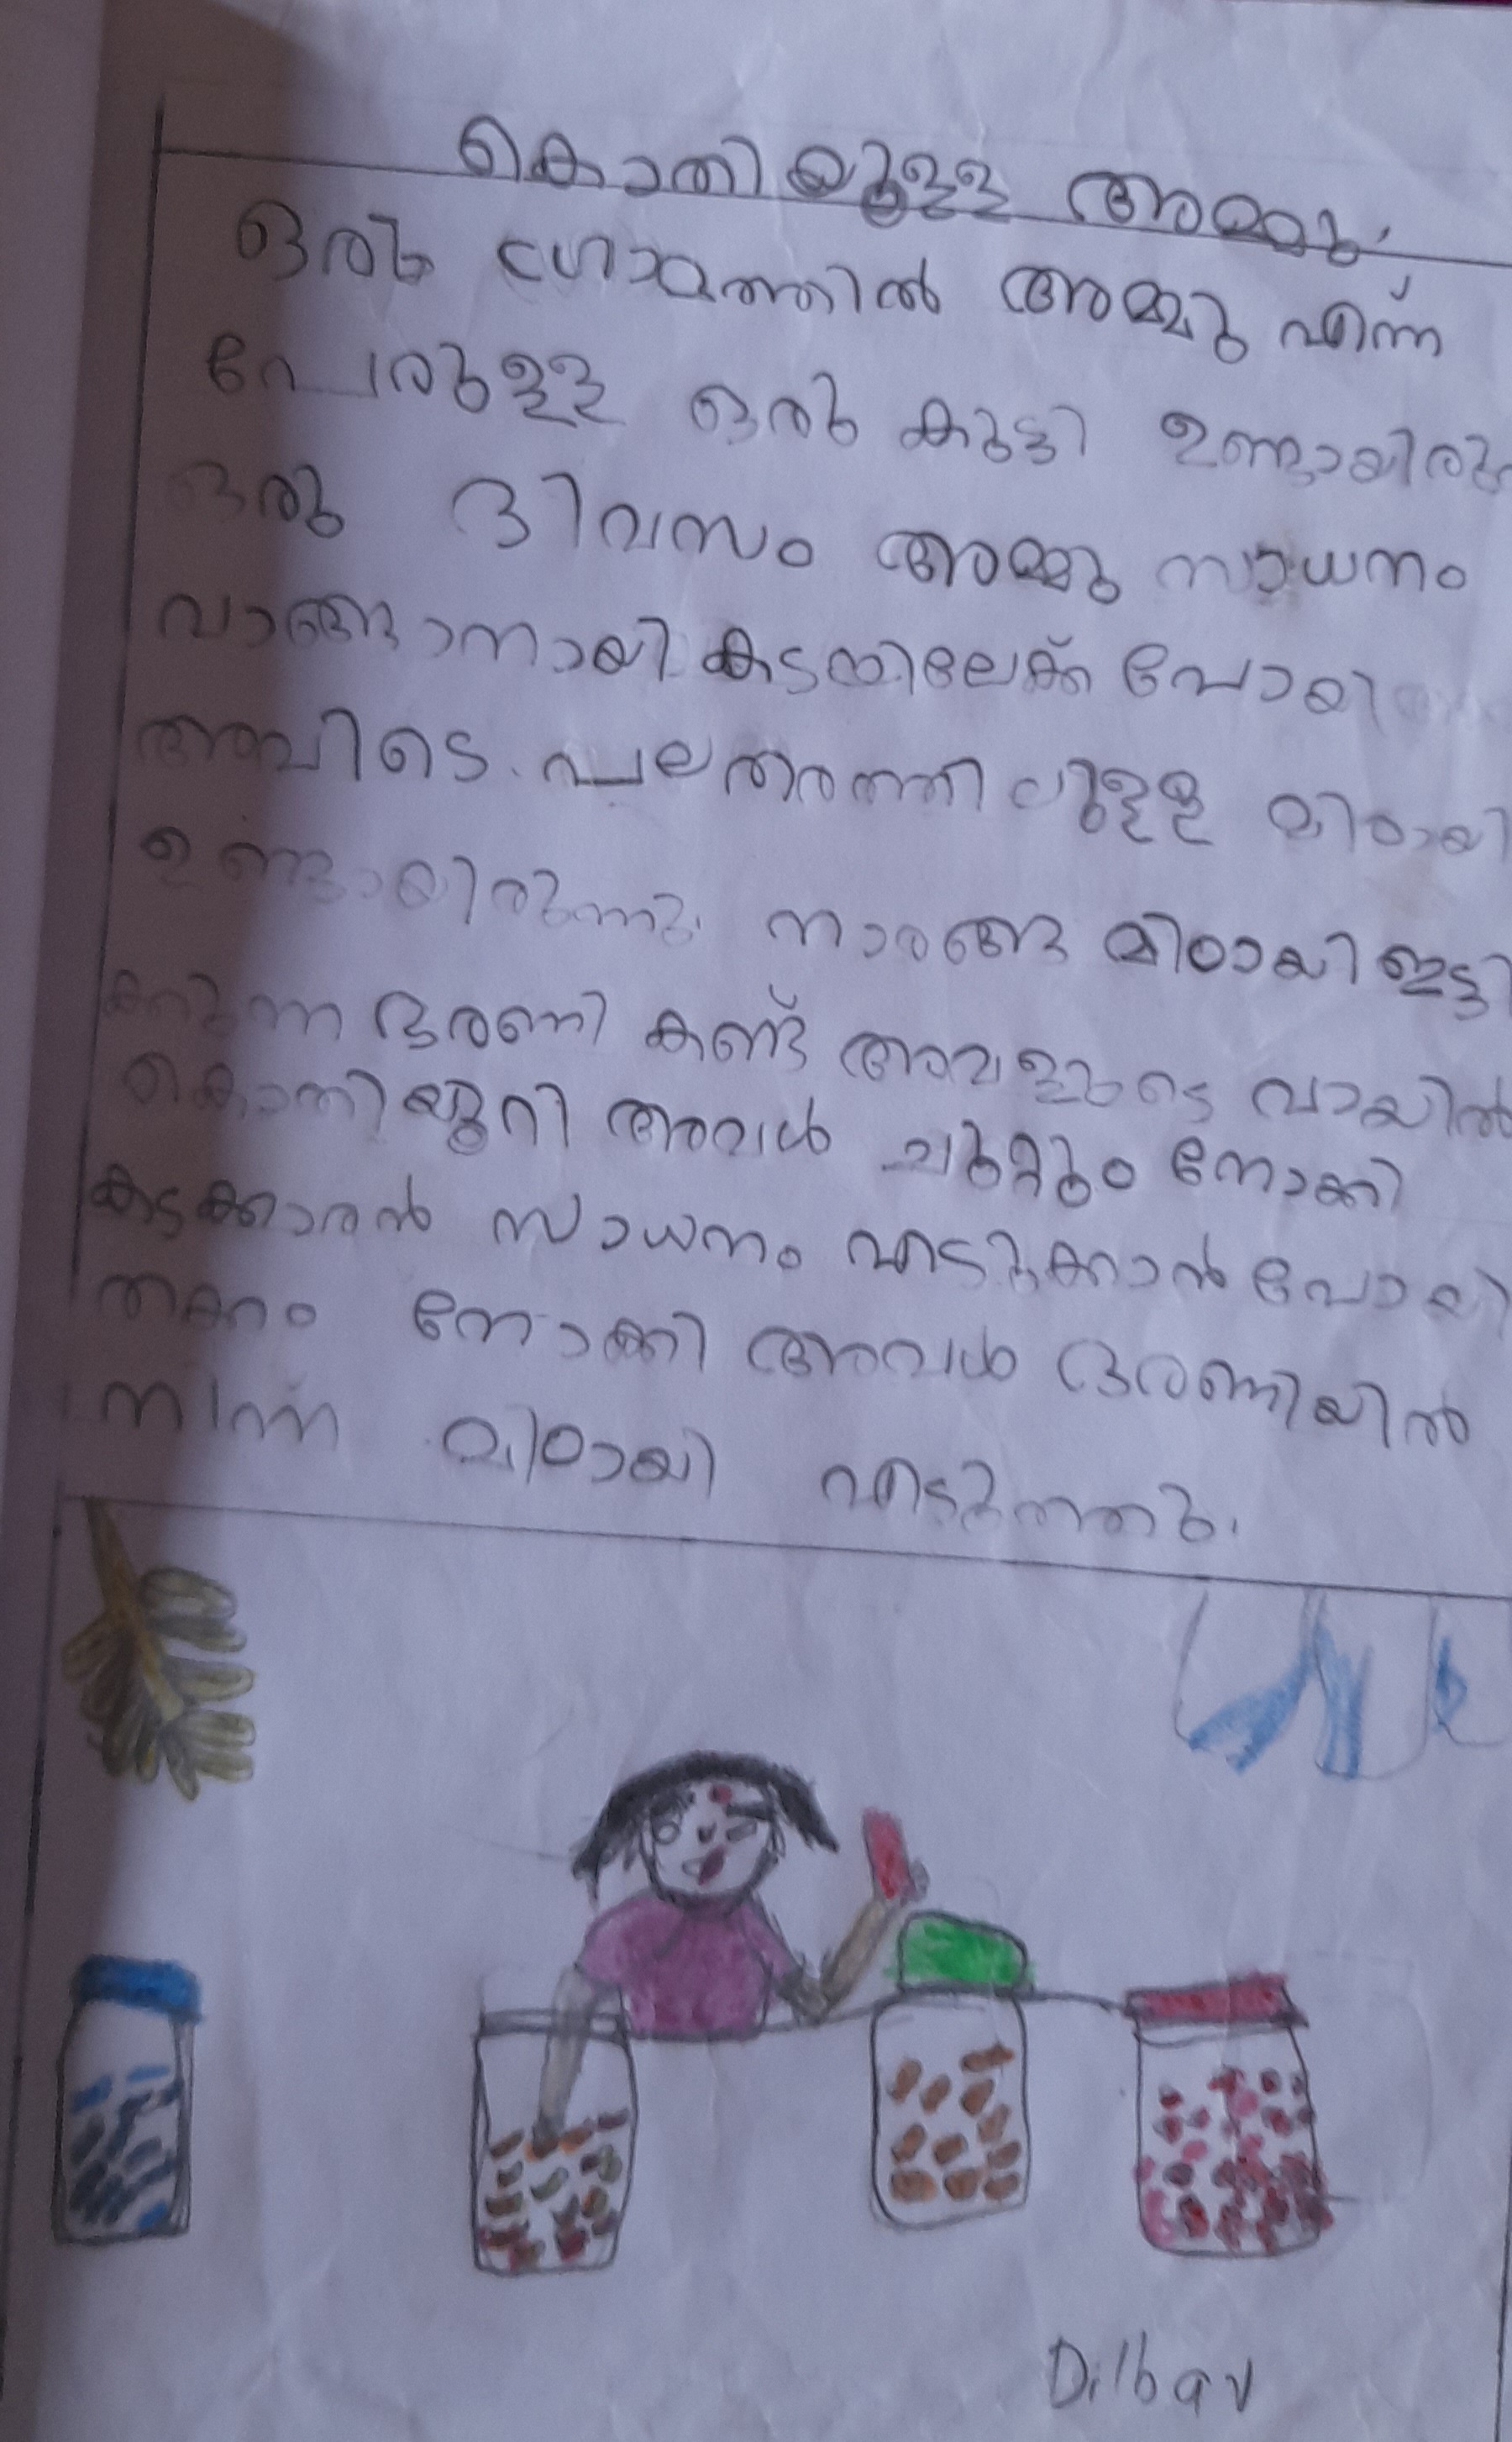 കൊതിയുള്ള അമ്മു.
ഒരു ഗ്രാമത്തിൽ അമ്മു എന്ന്
പേരുള്ള ഒരു കുട്ടി
ഒരു ദിവസം അമ്മു സാധനം
വാങ്ങാനായി കടയിലേക്ക് പോയി
അവിടെ പലതരത്തിലുള്ള മിഠായി
ഉണ്ടായിരുന്നു. നാരങ്ങ മിഠായി ഇട്ടി
ഭരണി കണ്ട് അവളുടെ വായിൽ
കൊതിയൂറി അവൾ ചുറ്റും നോക്കി
കടക്കാരൻ സാധനം എടുക്കാൻ പോയി
തക്കം നോക്കി അവൾ ഭരണിയിൽ
നിന്ന് മിഠായി എടുത്തു.
Dilbav